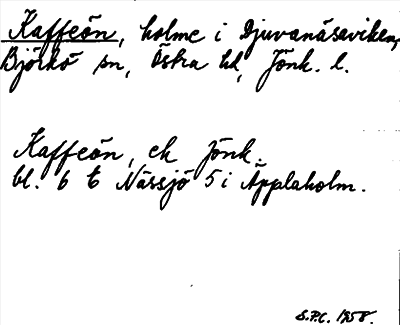 Kaffeön, holme i Djuvanäsaviken,
Björkö sn, Östra hd, Jönk. l.
Kaffeön, ek Jönk.
bl. 6 t Nässjö 5 i Äpplaholm.
S.P.C. 1958.